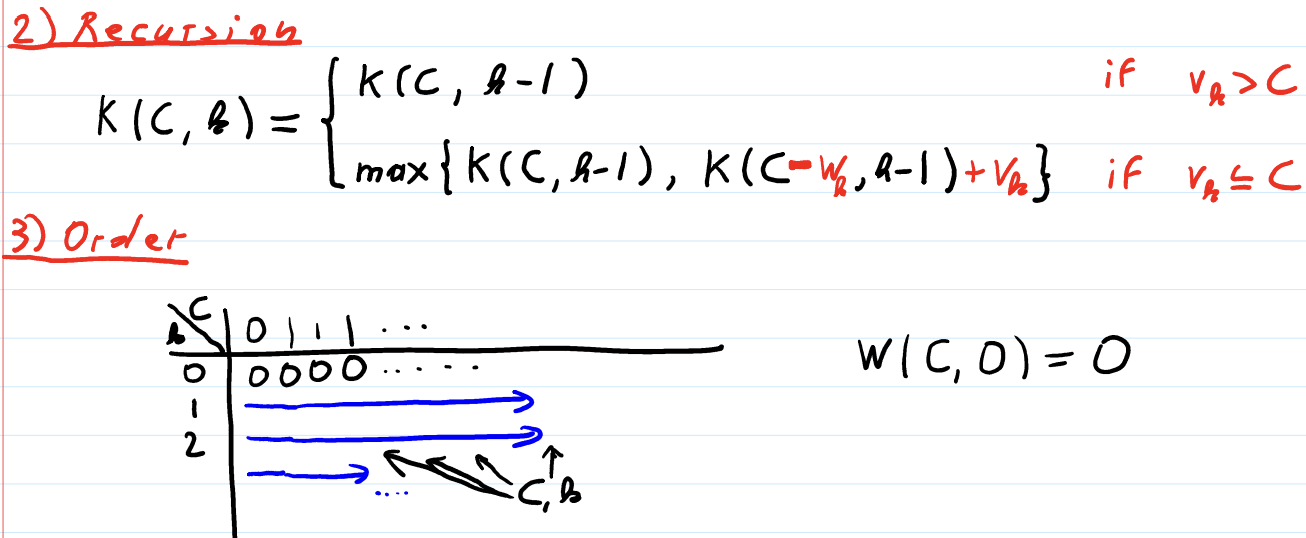 2) Recursion
K(C, k) = { K(C, k-1) if v_k > C
max{ K(C, k-1), K(C - w_k, k-1) + v_k } if v_k ≤ C
3) Order
k \ C | 0 1 1 1 ...
0 | 0 0 0 0 ..... W(C, 0) = 0
1
2
.... C, k